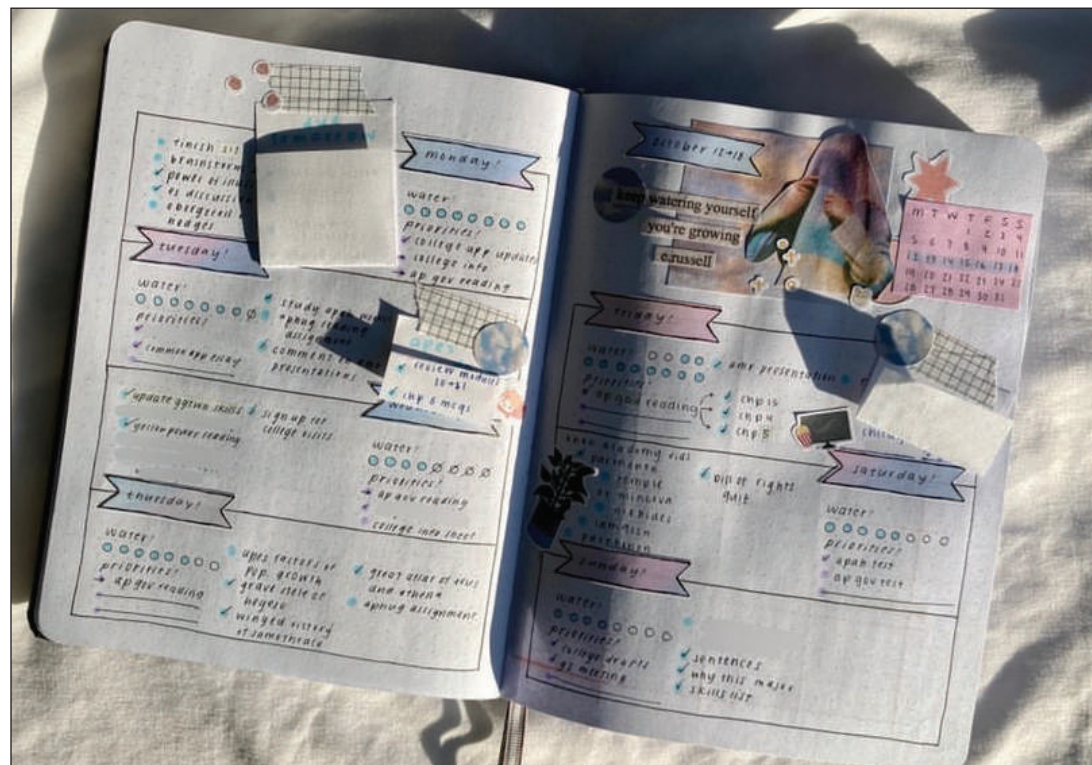 finish
brainstorm
power of
discussion
hodges
monday!
water!
priorities!
college app updates
college info
ap gov reading
tuesday!
water!
priorities!
common app essay
study apes
aphug reading
assignment
comment
presentations
apes
review modules
chp 6 mcqs
update ggrwn skills
yellow power reading
sign up for
college visits
water!
priorities!
ap gov reading
college info sheet
thursday!
water!
priorities!
ap gov reading
apes factors of
pop. growth
grave stele of
hegeso
winged victory
of samothrace
great altar of zeus
and athena
aphug assignment
october 12→18
keep watering yourself
you're growing
c.russell
M T W T F S S
1 2 3 4
5 6 7 8 9 10 11
12 13 14 15 16 17 18
19 20 21 22 23 24 25
26 27 28 29 30 31
friday!
water!
priorities!
ap gov reading
chp 15
chp 4
chp 5
amr presentation
khan academy vids
temple
of minerva
parthenon
bill of rights
quiz
saturday!
water!
priorities!
apah test
ap gov test
sunday!
water!
priorities!
college drafts
gs meeting
sentences
why this major
skills list